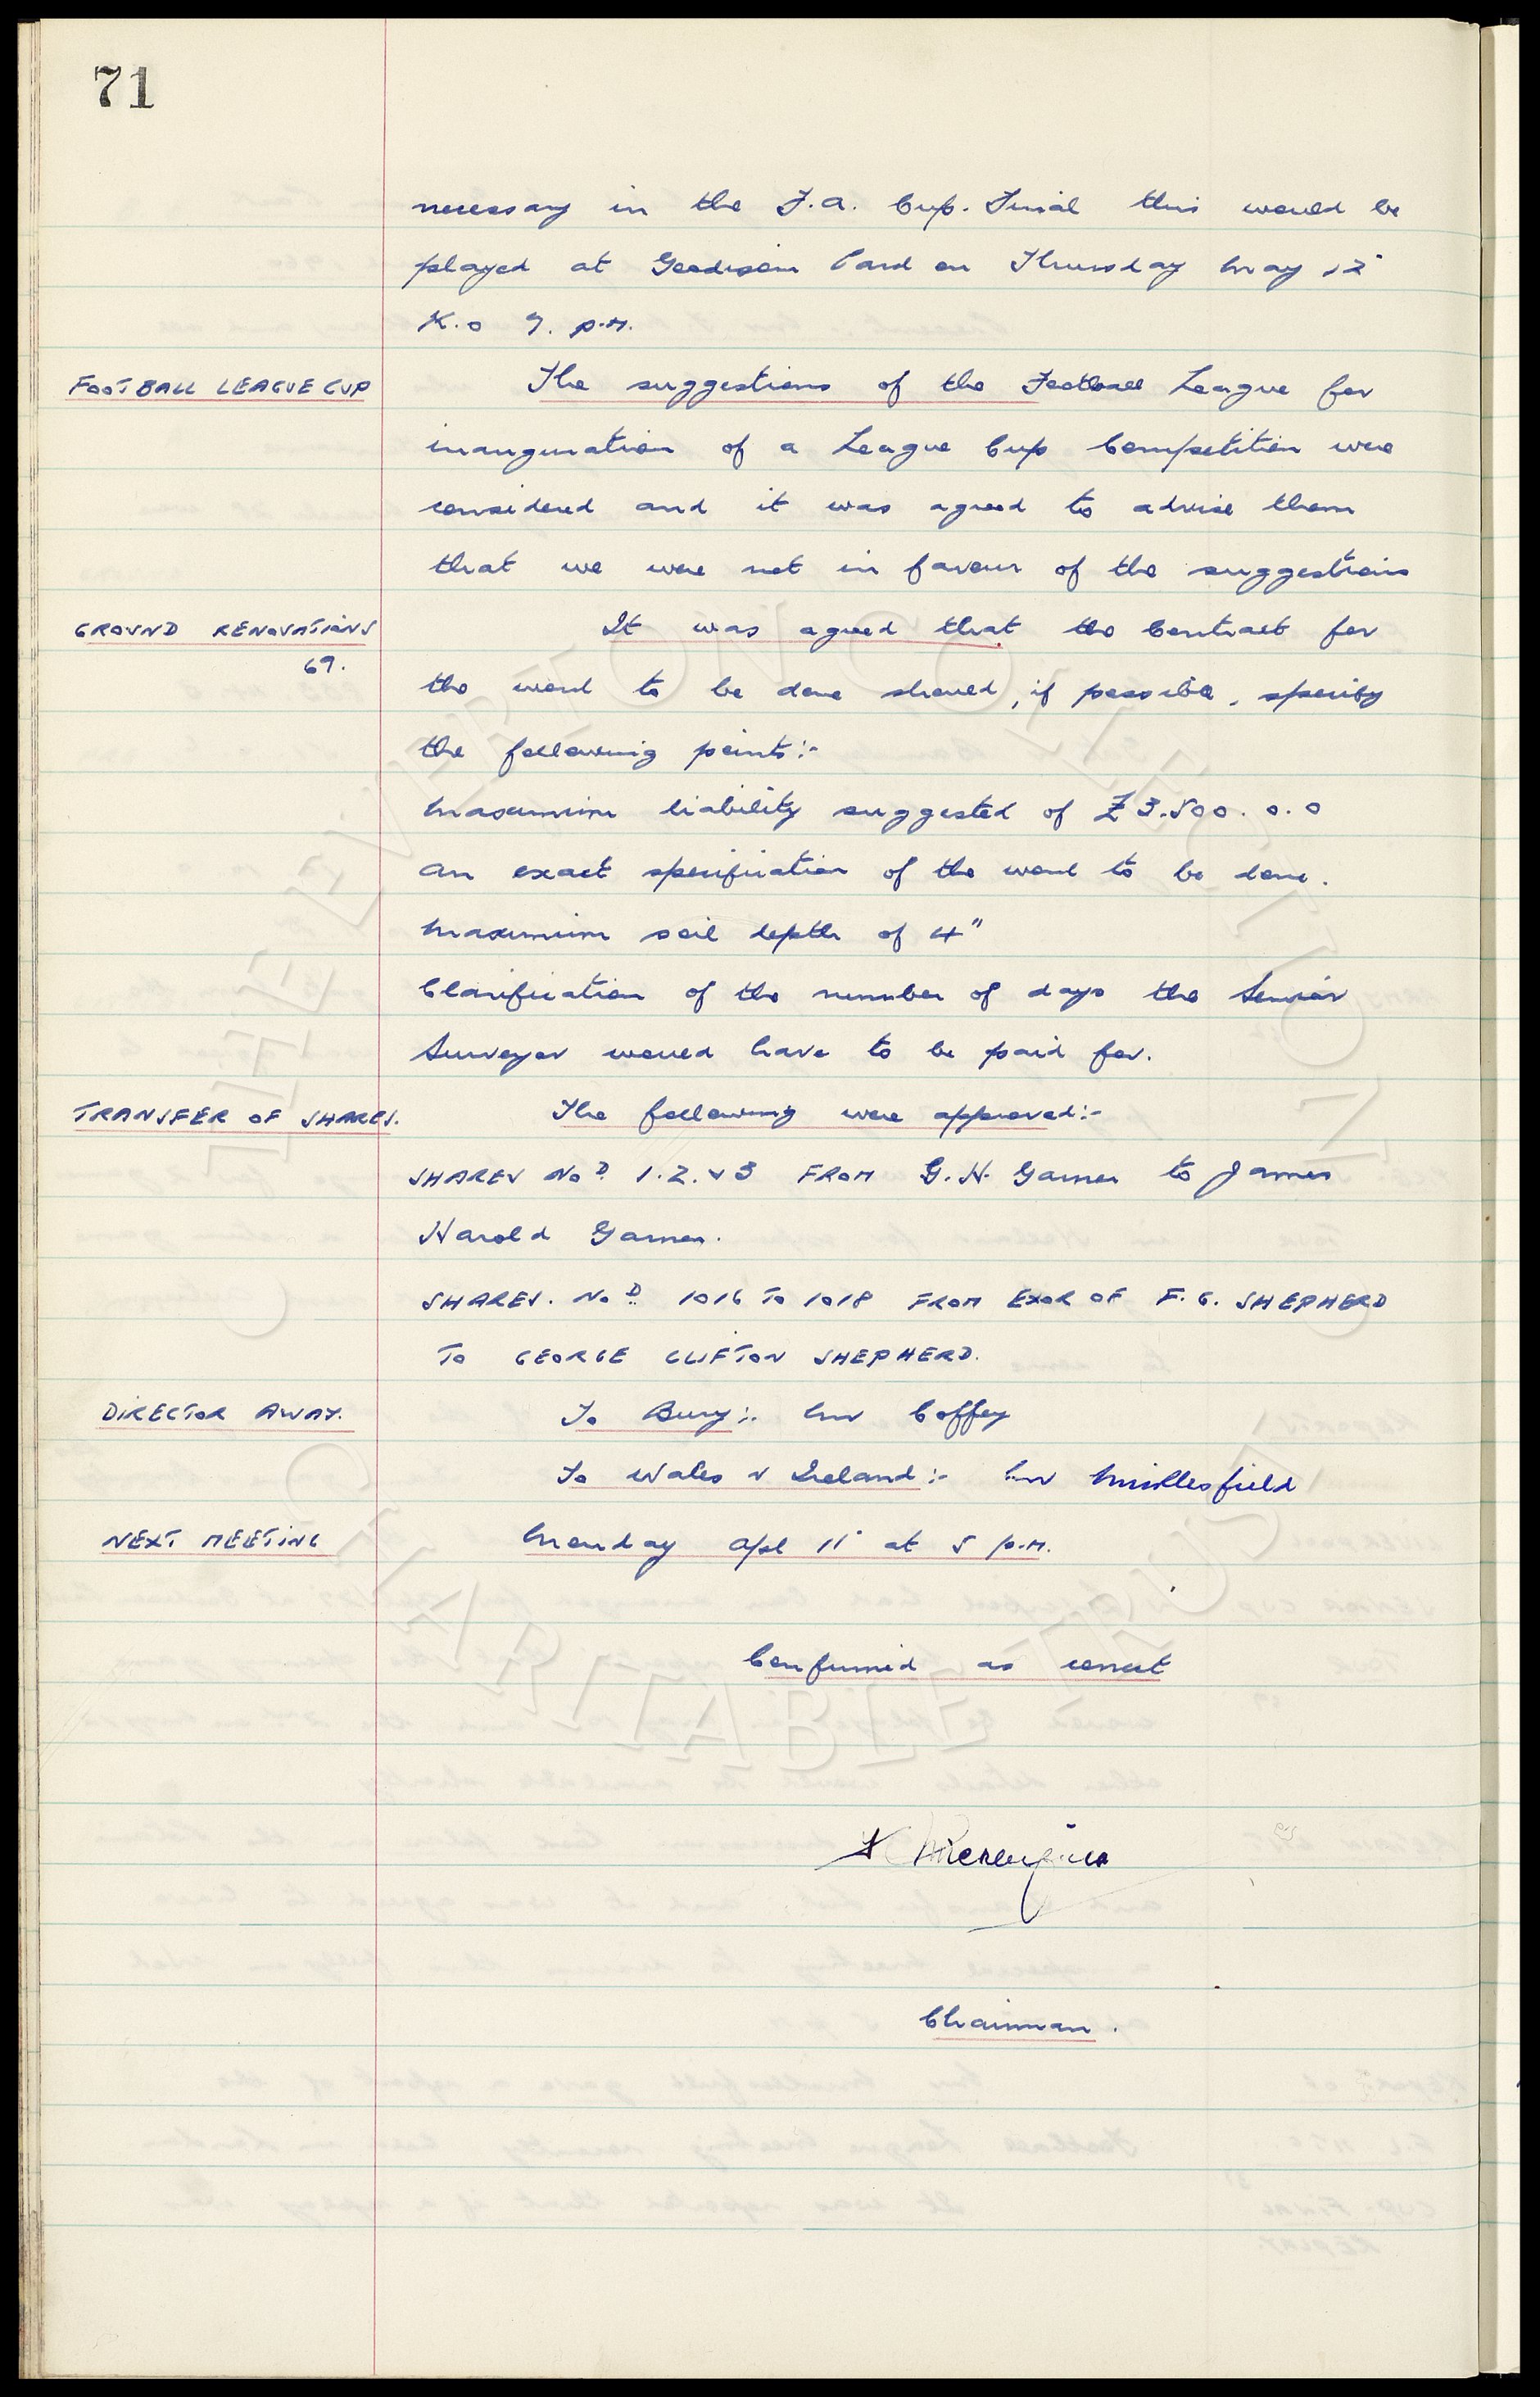 71
necessary in the F.A. Cup. Final this would be
played at Goodison Park on Thursday May 12
K.o 7. p.m.
FOOTBALL LEAGUE CUP The suggestions of the Football League for
inauguration of a League Cup Competition were
considered and it was agreed to advise them
that we were not in favour of the suggestions
GROUND RENOVATIONS It was agreed that the Contract for
69. the work to be done should, if possible, specify
the following points:-
Maximum liability suggested of £3.500.0.0
An exact specification of the work to be done.
Maximum soil depth of 4"
Clarification of the number of days the Senior
Surveyor would have to be paid for.
TRANSFER OF SHARES. The following were approved:-
SHARES NoD 1.2.&3 FROM G.H. Garner to James
Harold Garner.
SHARES. NoD 1016 TO 1018 FROM EXOR OF F.G. SHEPHERD
TO GEORGE CLIFTON SHEPHERD.
DIRECTOR AWAY. To Bury:- Mr Coffey
To Wales v Ireland:- Mr Micklesfield
NEXT MEETING Monday Apl 11 at 5 p.m.
Confirmed as correct
Chairman.